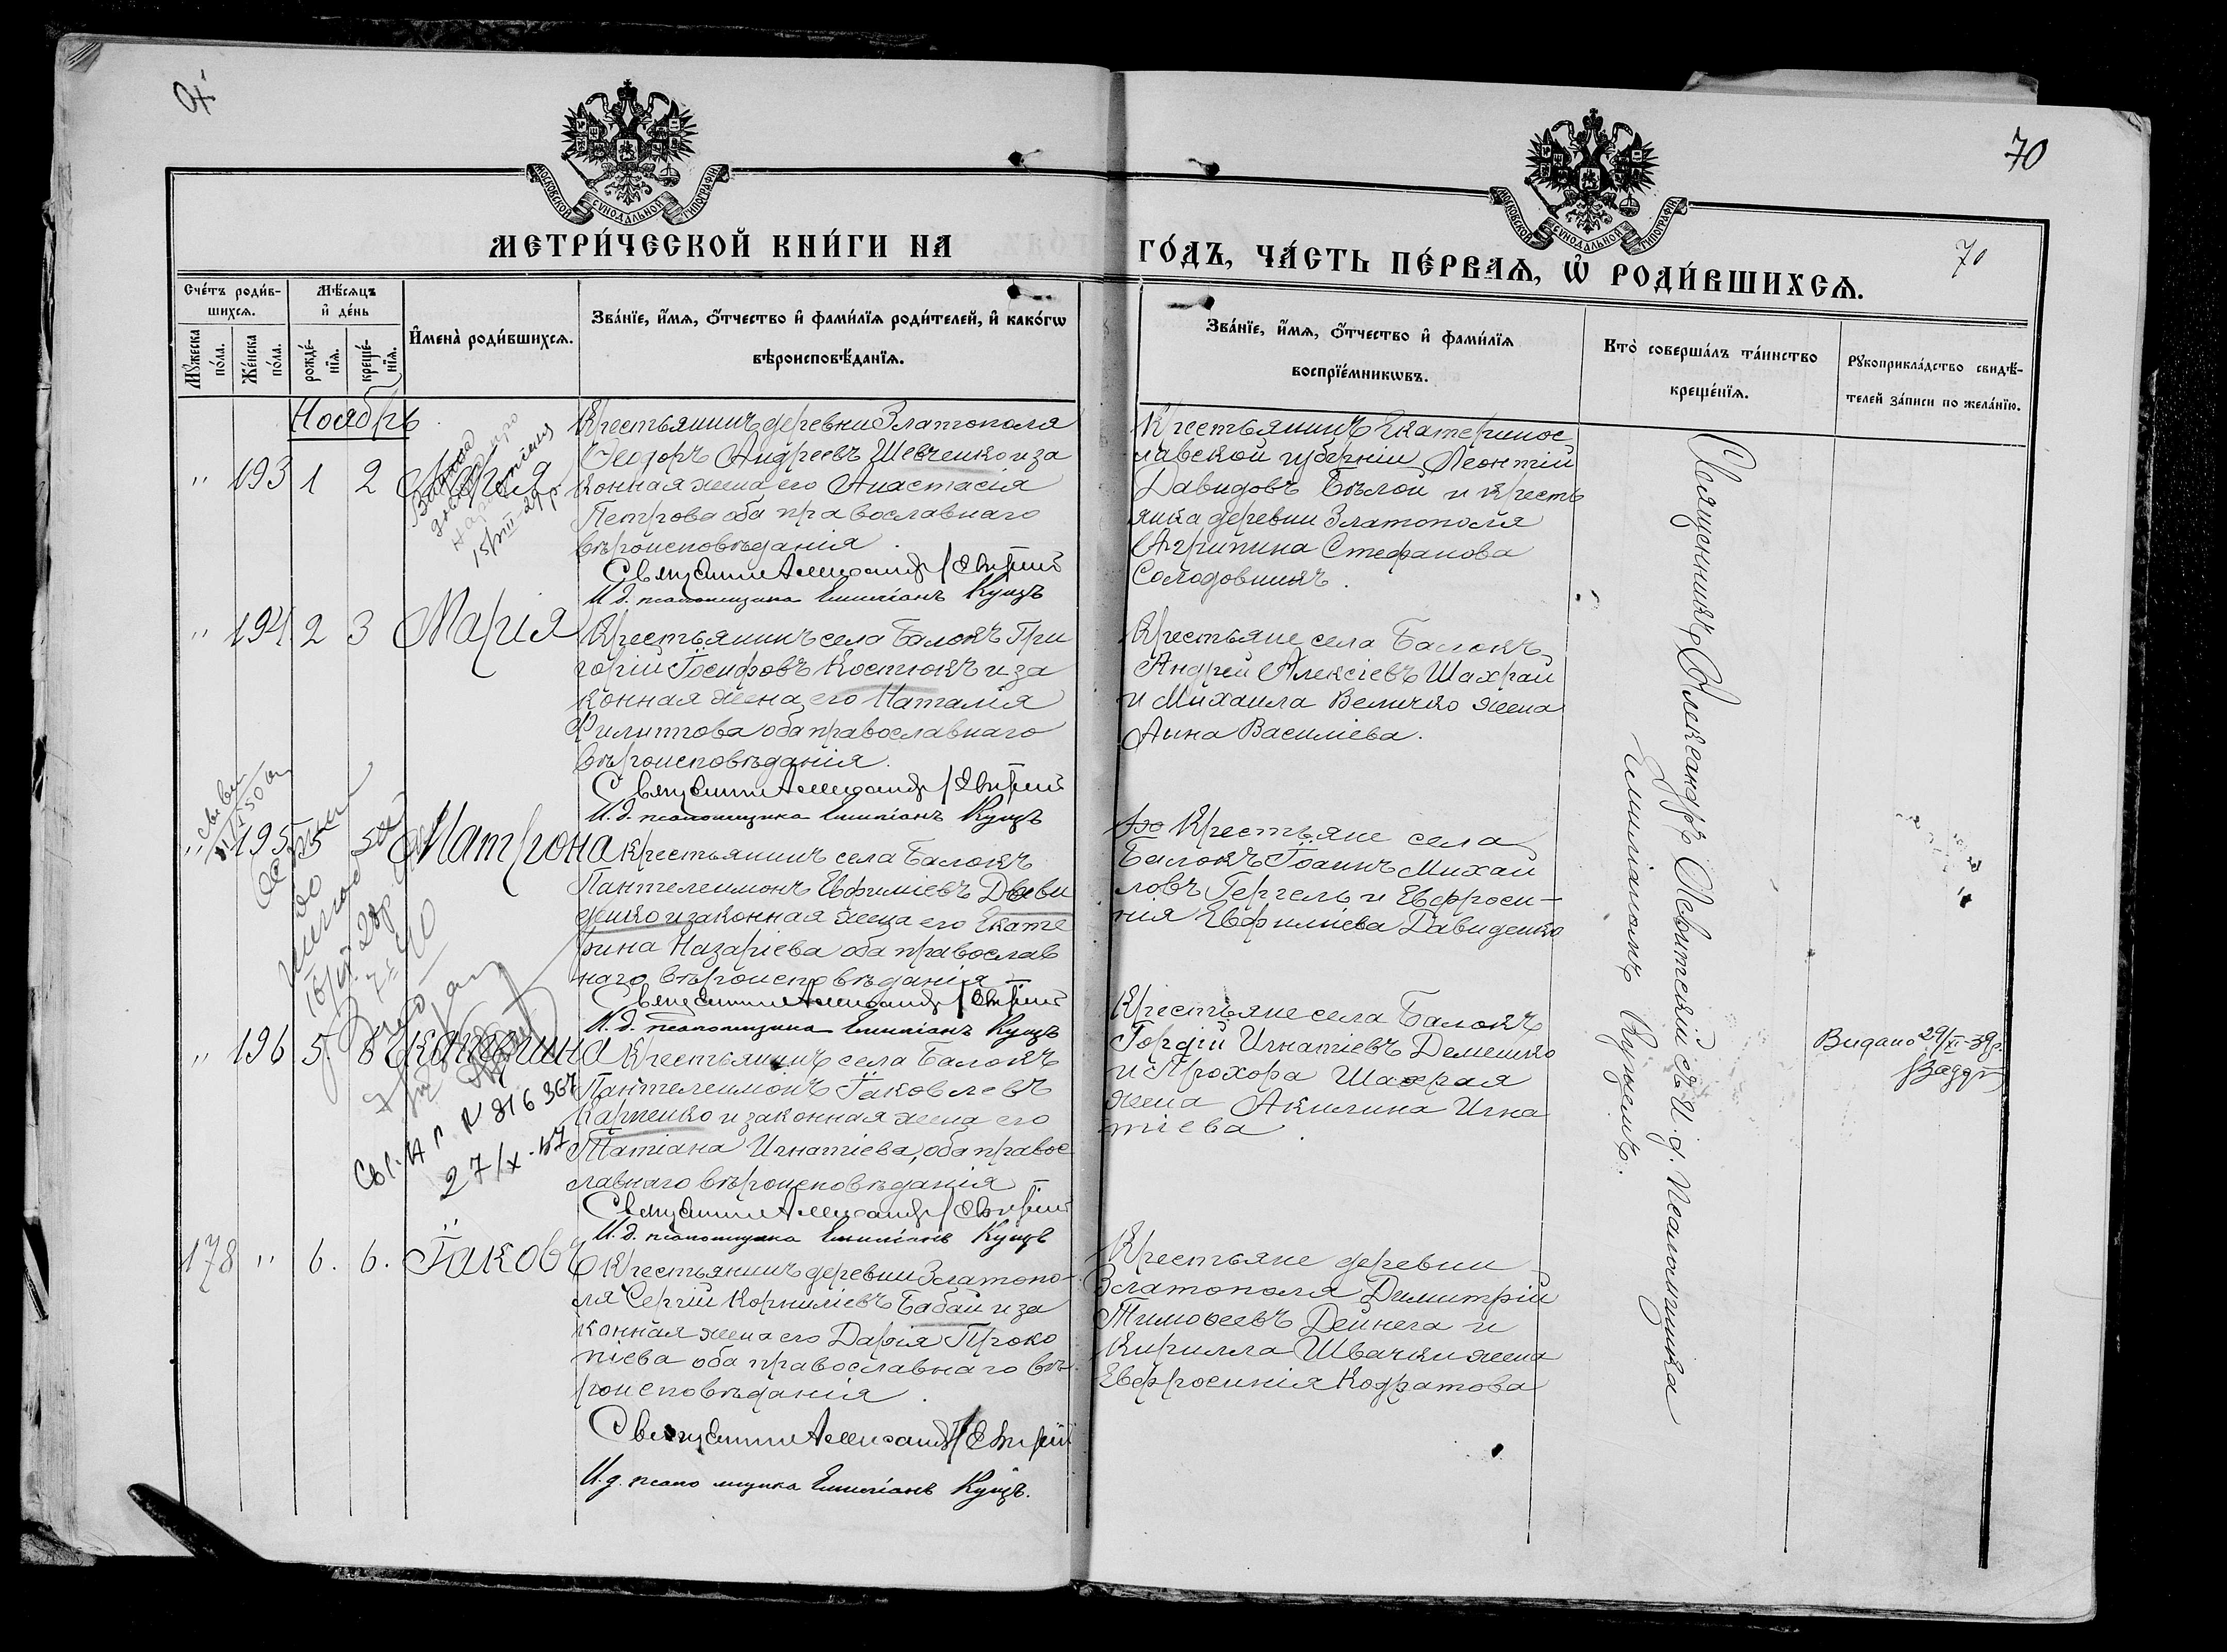 70
70
МОСКОВСКОЙ СѴНОДАЛЬНОЙ ТИПОГРАФІИ
МОСКОВСКОЙ СѴНОДАЛЬНОЙ ТИПОГРАФІИ
МЕТРИ́ЧЕСКОЙ КНИ́ГИ НА
ГО́ДЪ, ЧА́СТЬ ПЕ́РВАѦ, Ѽ РОДИ́ВШИХСѦ.
Сче́тъ роди́в-
шихсѧ.
Мꙋжеска
по́ла.
Же́нска
по́ла.
Мѣ́сѧцъ
и҆ де́нь
рожде́-
нїѧ.
креще́-
нїѧ.
И҆мена̀ роди́вшихсѧ.
Зва́нїе, и҆́мѧ, ѻ҆́тчество и҆ фами́лїѧ роди́телей, и҆ како́гѡ
вѣроисповѣ́данїѧ.
Зва́нїе, и҆́мѧ, ѻ҆́тчество и҆ фами́лїѧ
воспрїе́мникѡвъ.
Кто̀ соверша́лъ та́инство
креще́нїѧ.
Рꙋкоприкла́дство свидѣ́-
телей за́писи по жела́нїю.
Ноябрь
" 193 1 2 Марія
15/VIII-29р.
Крестьянинъ деревни Златополя
Ѳеодоръ Андреевъ Шевченко и за
конная жена его Анастасія
Петрова оба православнаго
вѣроисповѣданія.
Священникъ Александръ
И.д. псаломщика Емиліанъ Куцъ
Крестьянинъ Екатеринос
лавской губерніи Леонтій
Давидовъ Бѣлой и кресть
янка деревни Златополя
Агрипина Стефанова
Солодовникъ.
" 194 2 3 Марія
Крестьянинъ села Балокъ Гри
горій Іосифовъ Костюкъ и за
конная жена его Наталія
Филиппова оба православнаго
вѣроисповѣданія.
Священникъ Александръ
И.д. псаломщика Емиліанъ Куцъ
Крестьяне села Балокъ
Андрей Алексіевъ Шахрай
и Михаила Величко жена
Анна Василіева.
" 195 5 5 Матрона
Крестьянинъ села Балокъ
Пантелеимонъ Евфиміевъ Дави
денко и законная жена его Екате
рина Назаріева оба православ
наго вѣроисповѣданія
Священникъ Александръ
И.д. псаломщика Емиліанъ Куцъ
Крестьяне села
Балокъ Іоаннъ Михай
ловъ Гергель и Евфроси-
нія Евфиміева Давиденко
" 196 5. 6 Екатерина
N 816 367
27/X-57
Крестьянинъ села Балокъ
Пантелеимонъ Іаковлевъ
Карпенко и законная жена его
Татіана Игнатіева, оба правос
лавнаго вѣроисповѣданія
Священникъ Александръ
И.д. псаломщика Емиліанъ Куцъ
Крестьяне села Балокъ
Гордій Игнатіевъ Демешко
и Прохора Шахрая
жена Акилина Игна
тіева.
Видано 29/XI-39р.
178 " 6. 6. Іаковъ
Крестьянинъ деревни Златопо-
ля Сергій Корниліевъ Бабай и за
конная жена его Дарія Проко
піева оба православнаго вѣ-
роисповѣданія.
Священникъ Александръ
И.д. псаломщика Емиліанъ Куцъ.
Крестьяне деревни
Златополя Димитрій
Тимоѳеевъ Дейнега и
Кирилла Швачки жена
Евфросинія Кодратова
Священникъ Александръ съ И.д. Псаломщика
Емиліаномъ Куцемъ.